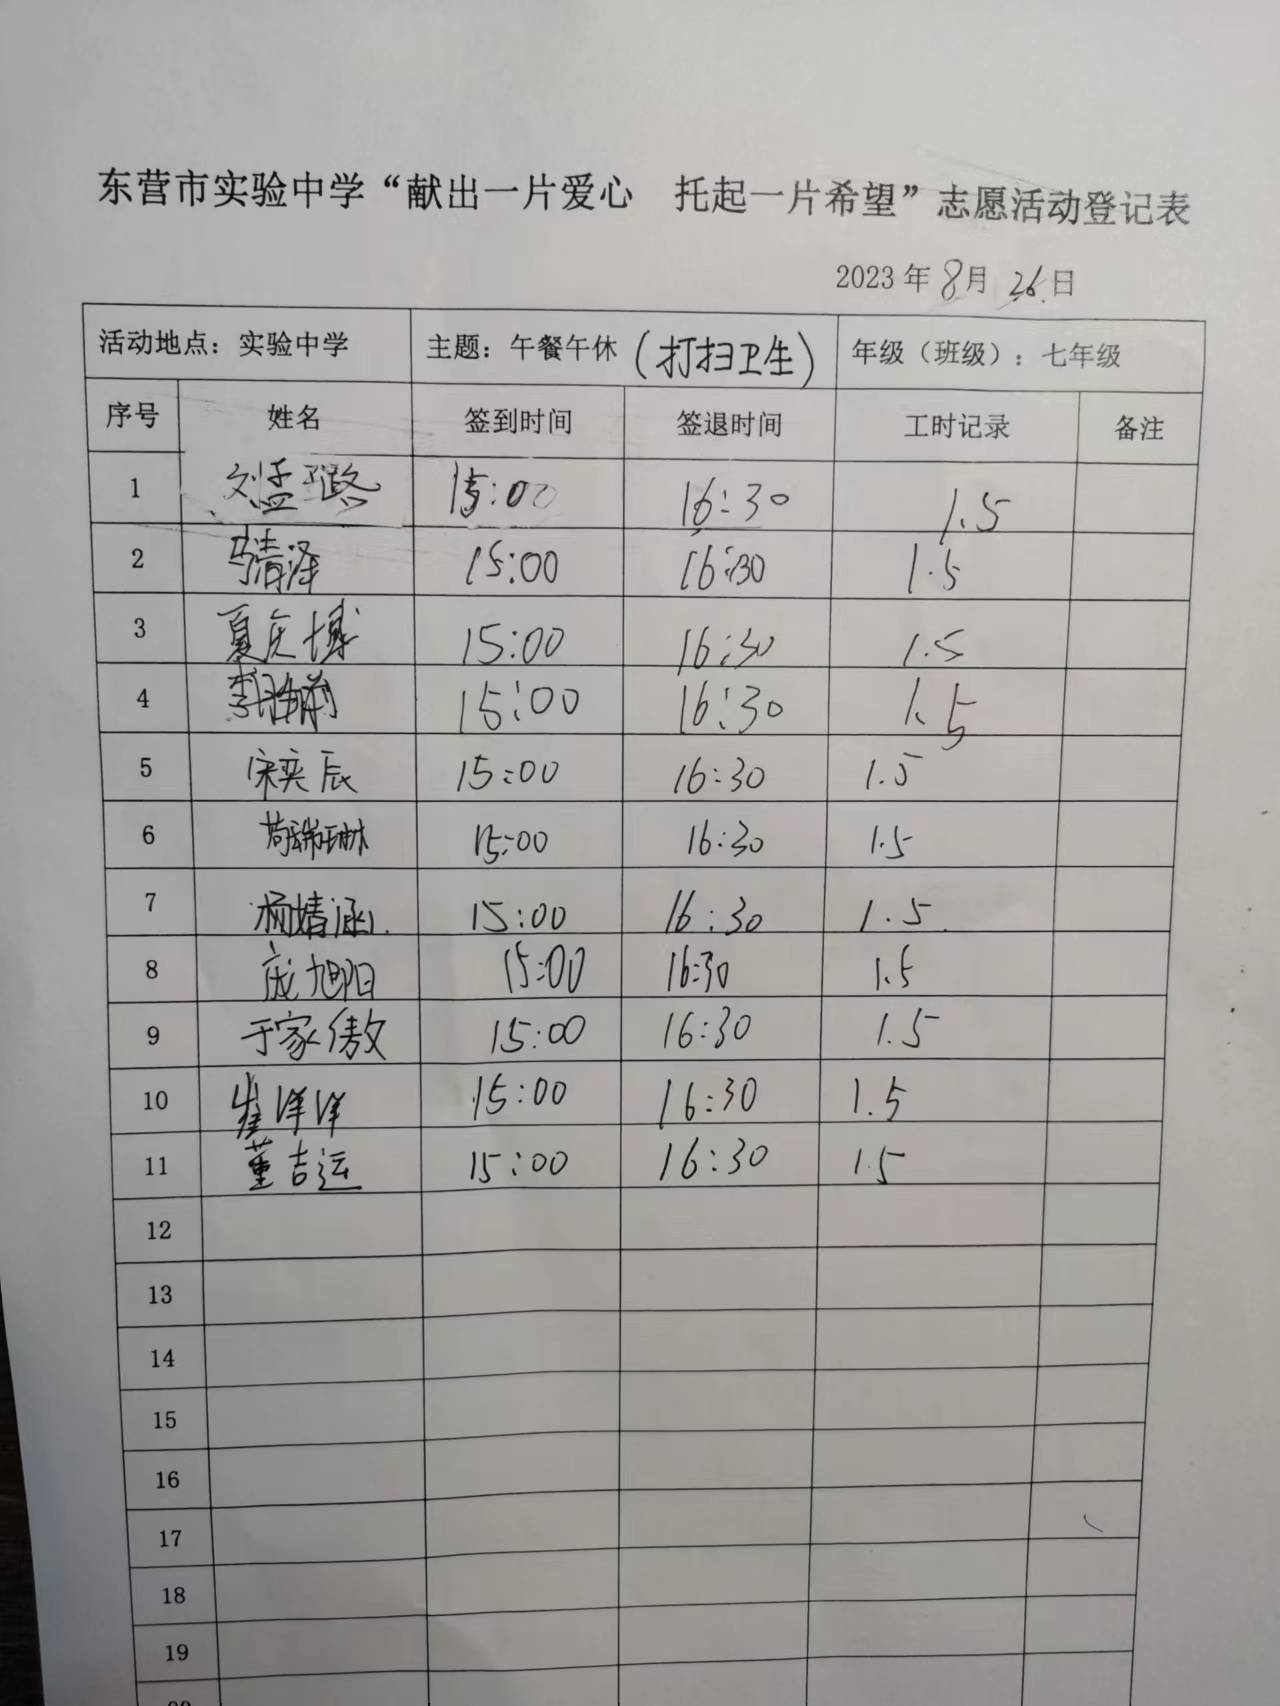 东营市实验中学“献出一片爱心 托起一片希望”志愿活动登记表
2023年8月26日
活动地点：实验中学 主题：午餐午休（打扫卫生） 年级（班级）：七年级
序号 姓名 签到时间 签退时间 工时记录 备注
1 刘孟璐 15:00 16:30 1.5
2 马清泽 15:00 16:30 1.5
3 夏庆博 15:00 16:30 1.5
4 15:00 16:30 1.5
5 宋奕辰 15:00 16:30 1.5
6 荀瑞琳 15:00 16:30 1.5
7 杨婧涵 15:00 16:30 1.5
8 庞旭阳 15:00 16:30 1.5
9 于家傲 15:00 16:30 1.5
10 崔洋洋 15:00 16:30 1.5
11 董吉运 15:00 16:30 1.5
12
13
14
15
16
17
18
19